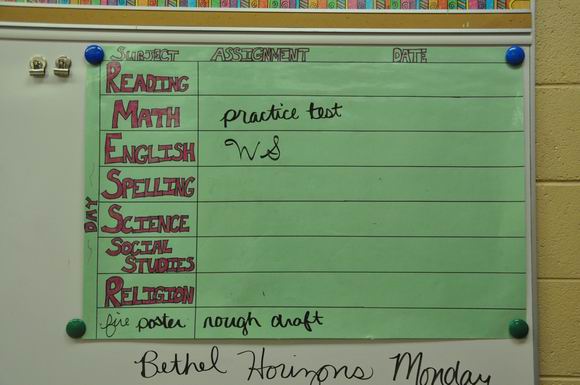 SUBJECT ASSIGNMENT DATE
READING
MATH practice test
ENGLISH WS
SPELLING
SCIENCE
SOCIAL
STUDIES
RELIGION
fire poster rough draft
DAY
Bethel Horizons Monday